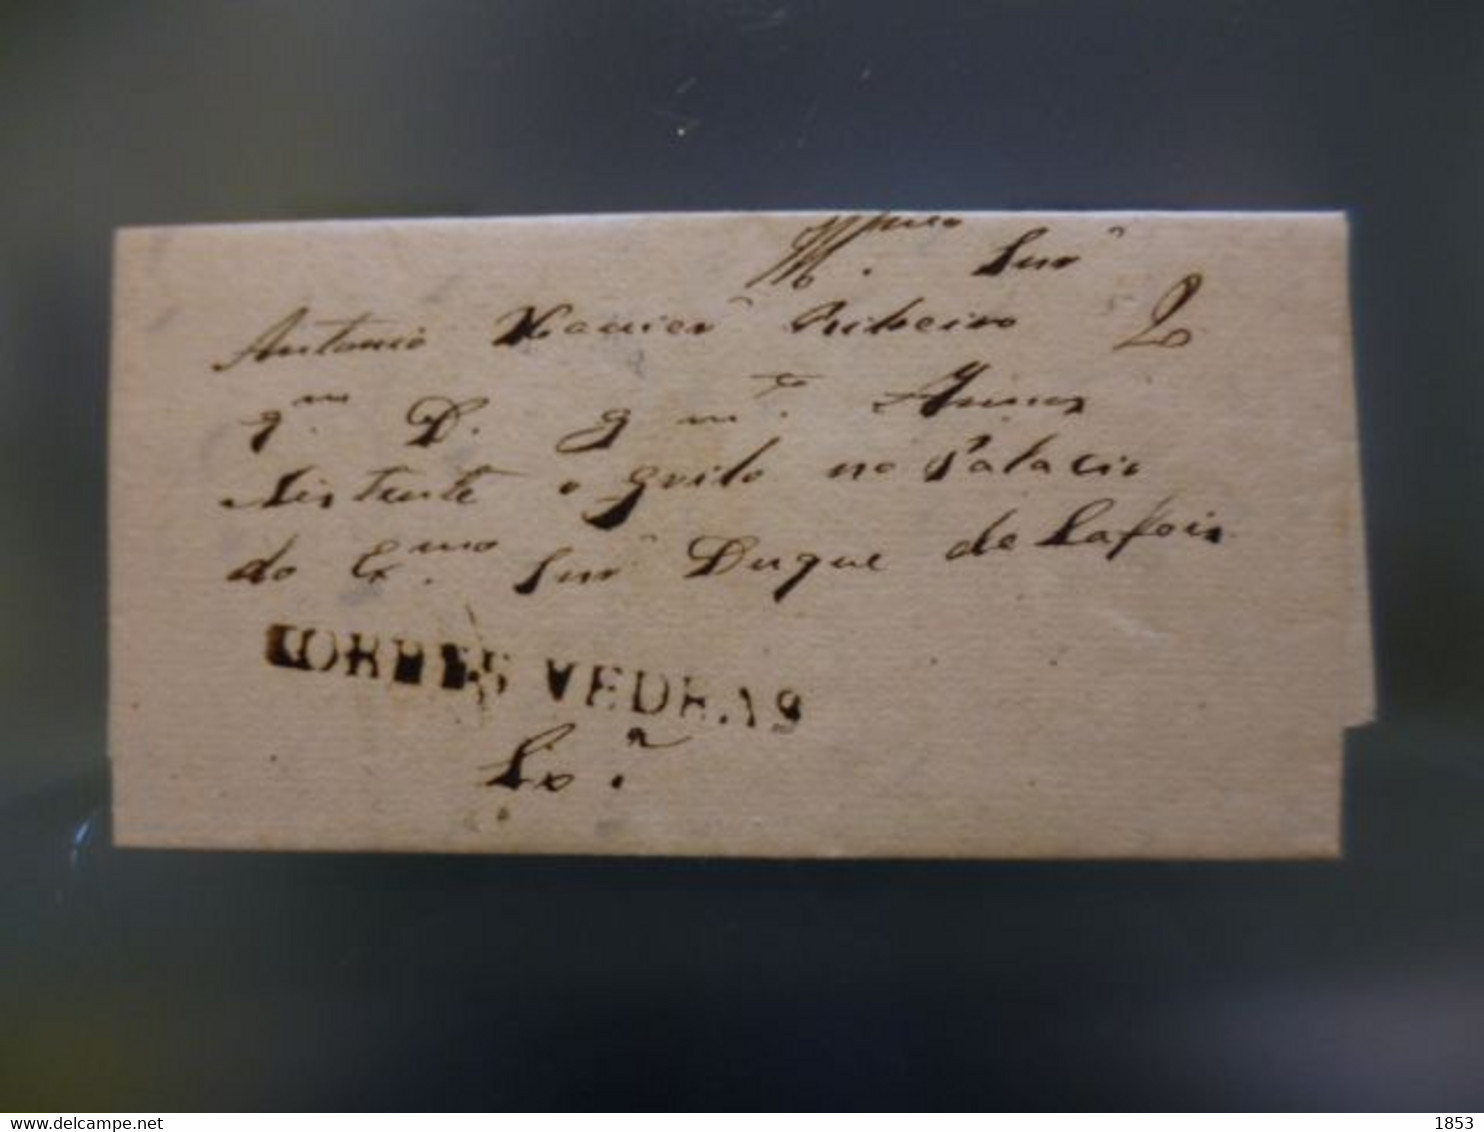 Illmo. Snr
Antonio Xavier Ribeiro
gm. D. g. mtos. Annos
Assistente no Palacio
do Exmo. Snr Duque de Lafois
TORRES VEDRAS
Lxa.
delcampe.net
1853